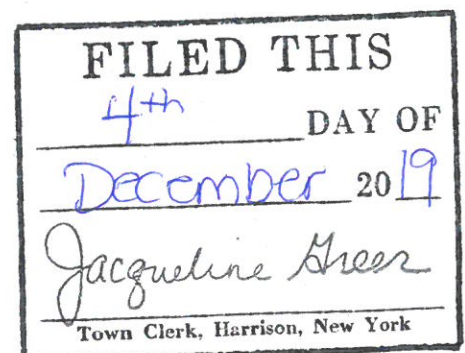 FILED THIS
4th DAY OF
December 2019
Jacqueline Greer
Town Clerk, Harrison, New York